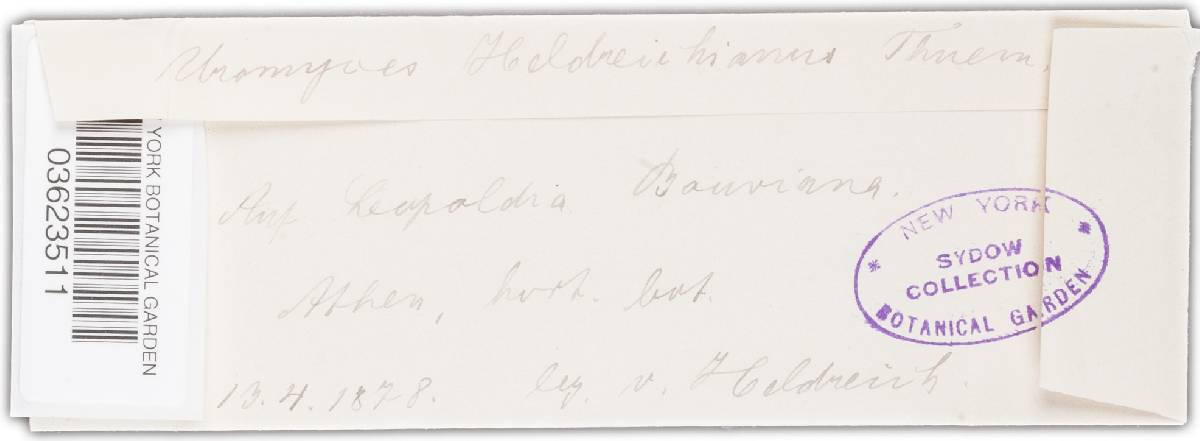 Uromyces Heldreichianus Thuem.
Auf Leopoldia Bouviana.
Athen, hort. bot.
13.4.1878. leg. v. Heldreich.
NEW YORK
SYDOW
COLLECTION
BOTANICAL GARDEN
YORK BOTANICAL GARDEN
03623511